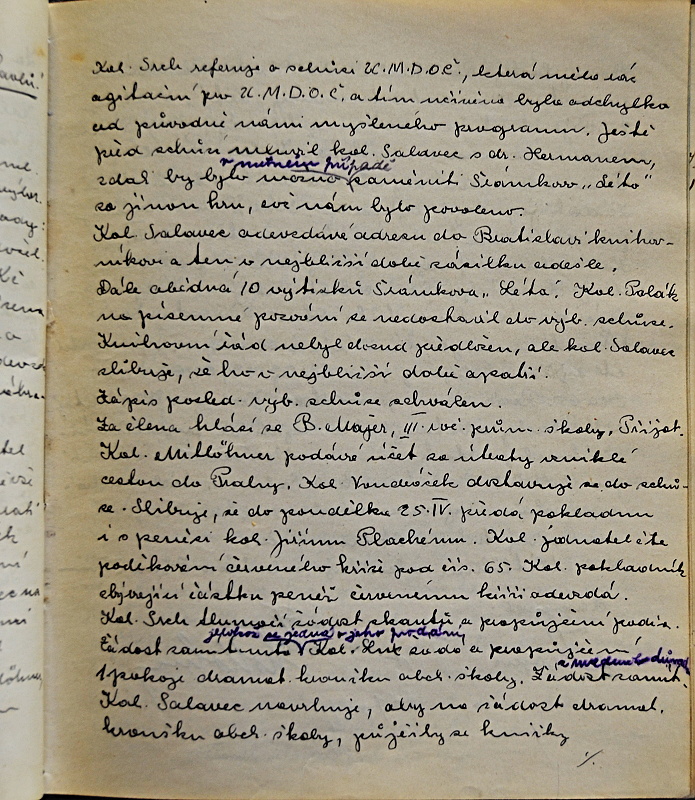 Kol. Srch referuje o schůzi U.M.D.O.Č., která měla ráz
agitační pro U.M.D.O.Č. a tím učiněna byla odchylka
od původně námi myšleného programu. Ještě
před schůzí mluvil kol. Salavec s dr. Hermanem,
v nutném případě
zdali by bylo možno zaměniti Šrámkovo „Léto"
za jinou hru, což nám bylo povoleno.
Kol. Salavec odevzdává adresu do Bratislavi knihov-
níkovi a ten v nejbližší době zásilku odešle.
Dále obědná 10 výtisků Šrámkova „Léta". Kol. Polák
na písemné pozvání se nedostavil do výb. schůze.
Knihovní řád nebyl dosud předložen, ale kol. Salavec
slibuje, že ho v nejbližší době opatří.
Zápis posled. výb. schůze schválen.
Za člena hlásí se B. Majer, III. roč. prům. školy, Přijat.
Kol. Mittöhner podává účet za útraty vzniklé
cestou do Prahy. Kol. Vondráček dostavuje se do schů-
ze. Slibuje, že do pondělka 25.IV. předá pokladnu
i s penězi kol. Jiřímu Plachému. Kol. jednatel čte
poděkování červeného kříže pod čís. 65. Kol. pokladník
zbývající částku peněz červenému kříži odevzdá.
Kol. Srch tlumočí žádost skautů o propůjčení podia.
jelikož se jedná v jeho
Žádost zamítnuta Kol. žádá o propůjčení
1 pokoje dramat. kroužku obch. školy. Žádost zamít.
Kol. Salavec navrhuje, aby na žádost dramat.
kroužku obch. školy, půjčily se knížky
./.